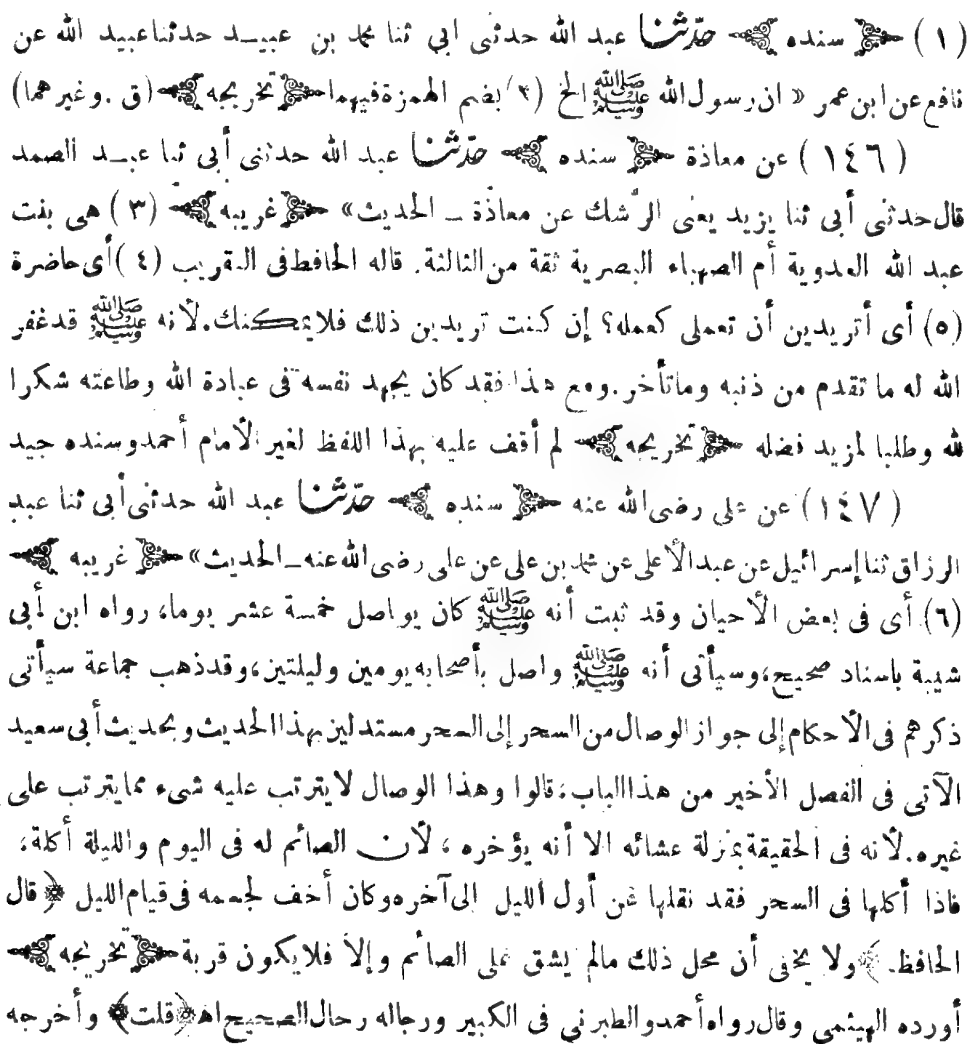 (١) ﴿ سنده ﴾ حدّثنا عبد الله حدثنى ابي ثنا محمد بن عبيد حدثنا عبيد الله عن
نافع عن ابن عمر « ان رسول الله ﷺ الخ (٢) بضم الهمزة فيهما ﴿ تخريجه ﴾ (ق . وغيرهما)
(١٤٦) عن معاذة ﴿ سنده ﴾ حدّثنا عبد الله حدثنى أبى ثنا عبد الصمد
قال حدثنى أبى ثنا يزيد يعنى الرشك عن معاذة ـ الحديث» ﴿ غريبه ﴾ (٣) هى بنت
عبد الله العدوية أم الصهباء البصرية ثقة من الثالثة. قاله الحافظ فى التقريب (٤) أى حاضرة
(٥) أى أتريدين أن تعملى كعمله؟ إن كنت تريدين ذلك فلا يمكنك. لأنه ﷺ قد غفر
الله له ما تقدم من ذنبه وما تأخر. ومع هذا فقد كان يجهد نفسه فى عبادة الله وطاعته شكرا
لله وطلبا لمزيد فضله ﴿ تخريجه ﴾ لم أقف عليه بهذا اللفظ لغير الأمام أحمد وسنده جيد
(١٤٧) عن على رضى الله عنه ﴿ سنده ﴾ حدّثنا عبد الله حدثنى أبى ثنا عبد
الرزاق ثنا إسرائيل عن عبد الأعلى عن محمد بن على عن على رضى الله عنه ـ الحديث» ﴿ غريبه ﴾
(٦) أى فى بعض الأحيان وقد ثبت أنه ﷺ كان يواصل خمسة عشر يوما، رواه ابن أبى
شيبة باسناد صحيح، وسيأتى أنه ﷺ واصل بأصحابه يومين وليلتين، وقد ذهب جماعة سيأتى
ذكرهم فى الأحكام إلى جواز الوصال من السحر إلى السحر مستدلين بهذا الحديث وبحديث أبى سعيد
الآتى فى الفصل الأخير من هذا الباب، قالوا وهذا الوصال لا يترتب عليه شىء مما يترتب على
غيره. لأنه فى الحقيقة بمنزلة عشائه الا أنه يؤخره ، لأن الصائم له فى اليوم والليلة أكلة،
فاذا أكلها فى السحر فقد نقلها عن أول الليل إلى آخره وكان أخف لجسمه فى قيام الليل ﴿ قال
الحافظ ﴾ ولا يخفى أن محل ذلك مالم يشق على الصائم وإلا فلا يكون قربة ﴿ تخريجه ﴾
أورده الهيثمى وقال رواه أحمد والطبرني فى الكبير ورجاله رجال الصحيح اه ﴿ قلت ﴾ وأخرجه